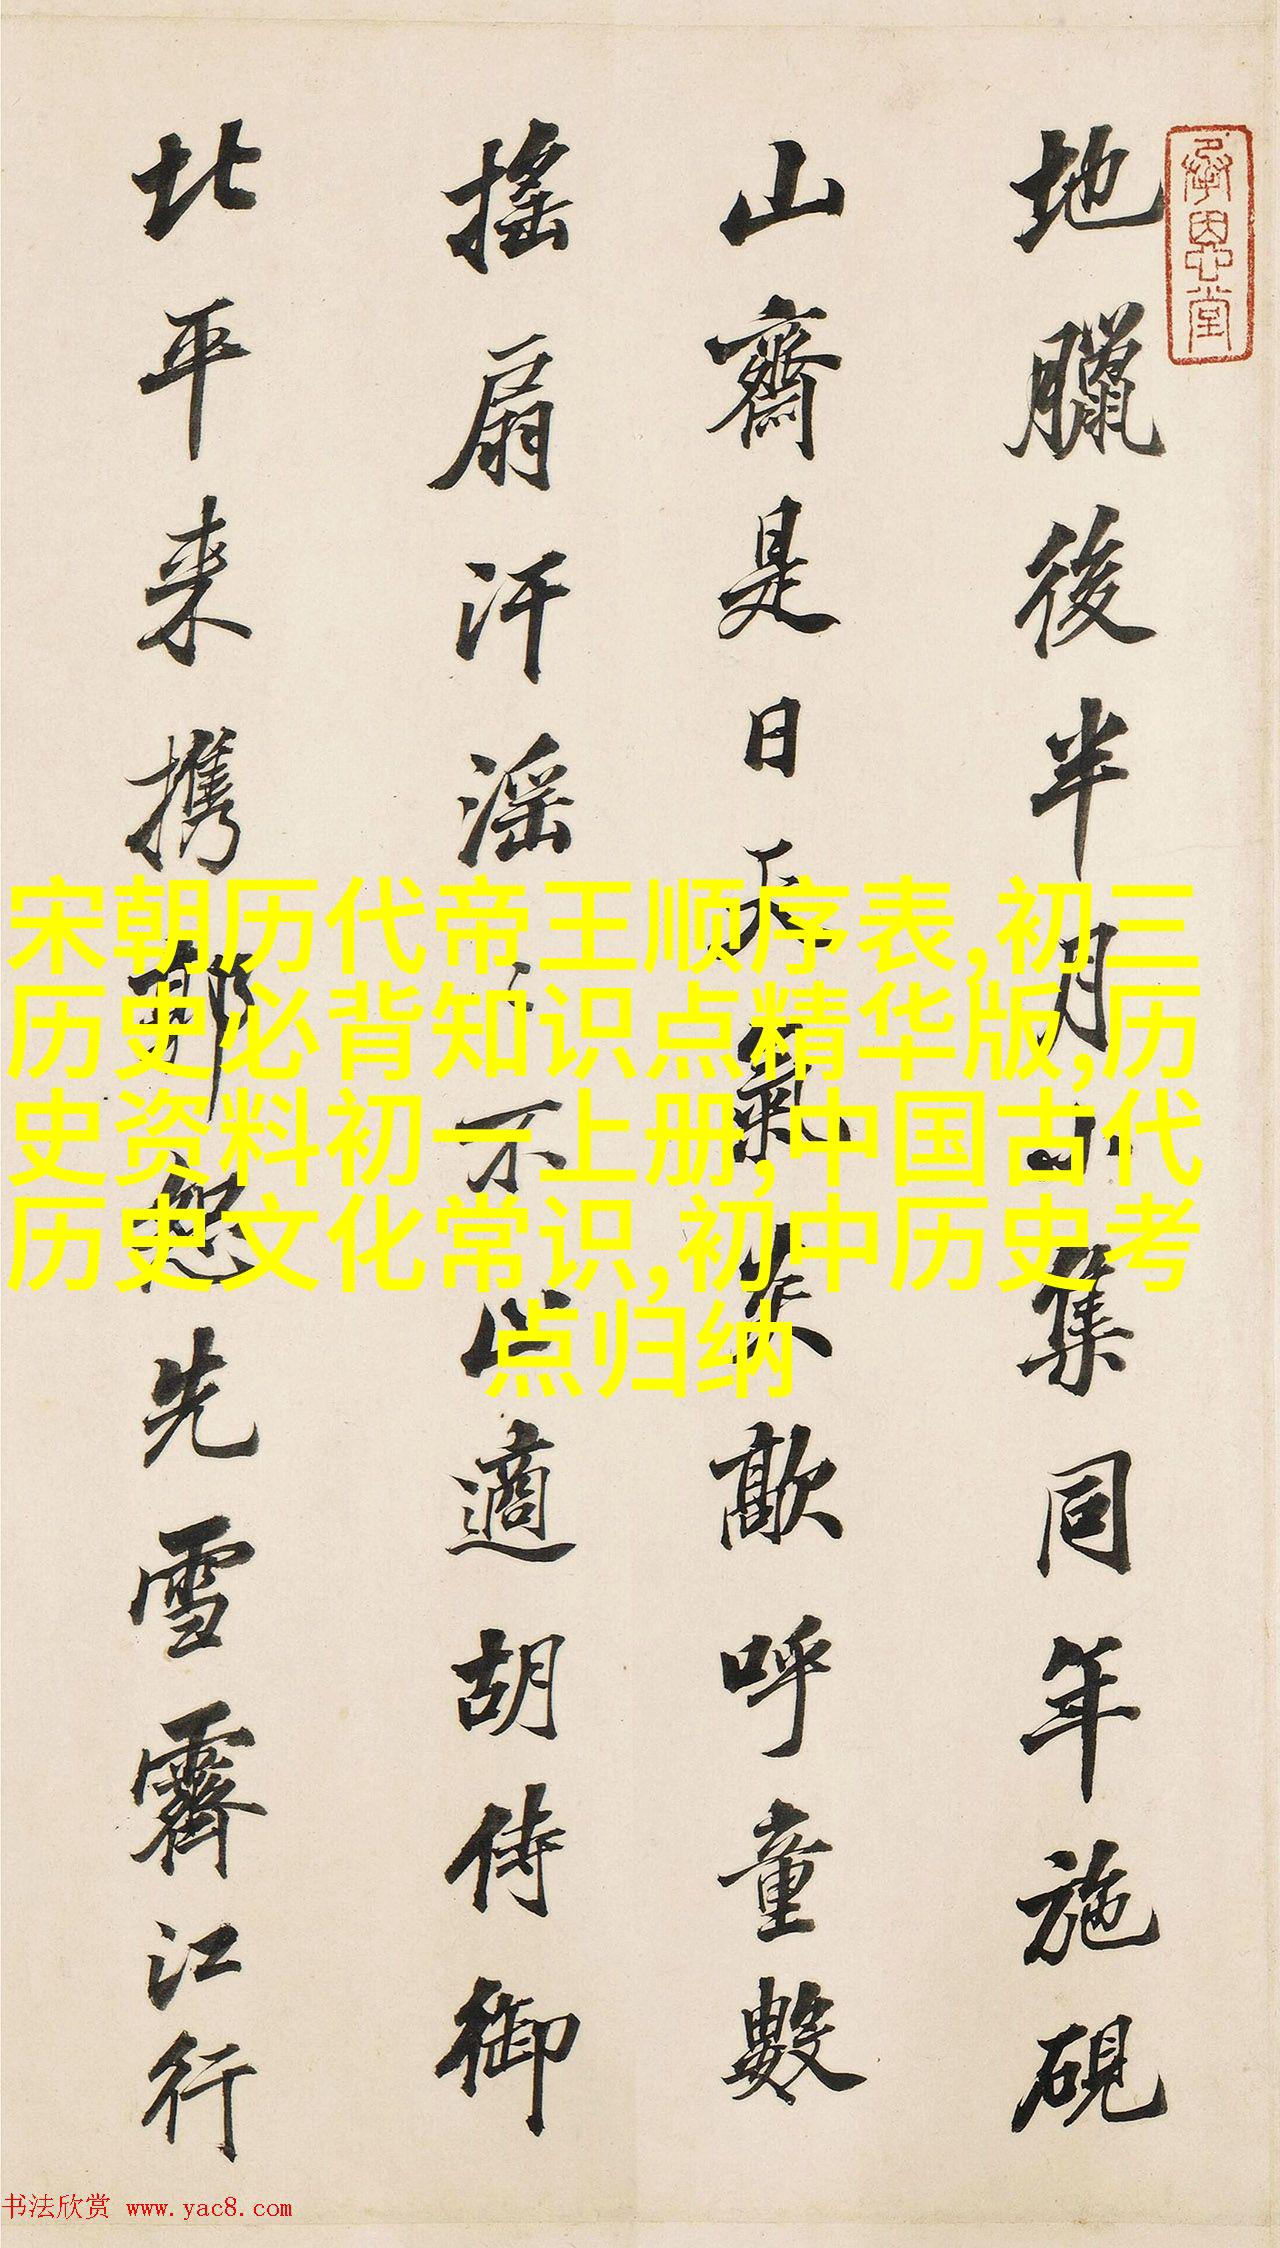 地臘後半月小集同年施硯
山齋是日天氣炎歊呼童數
搖扇汗滛〻不以適胡侍御
北平来携郭恕先雪霽江行
承恩堂
宋朝历代帝王顺序表,初三
历史必背知识点精华版,历
史资料初一上册,中国古代
历史文化常识,初中历史考
点归纳
书法欣赏 www.yac8.com